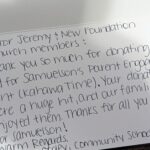 or Jeremy & New Foundation
urch members!
ank you so much for donating
for Samuelson's Parent Engag
nt (Kahawa Time). Your donat
ere a huge hit, and our famil
njoyed them. Thanks for all you
or Samuelson!
Warm Regards,
Community School